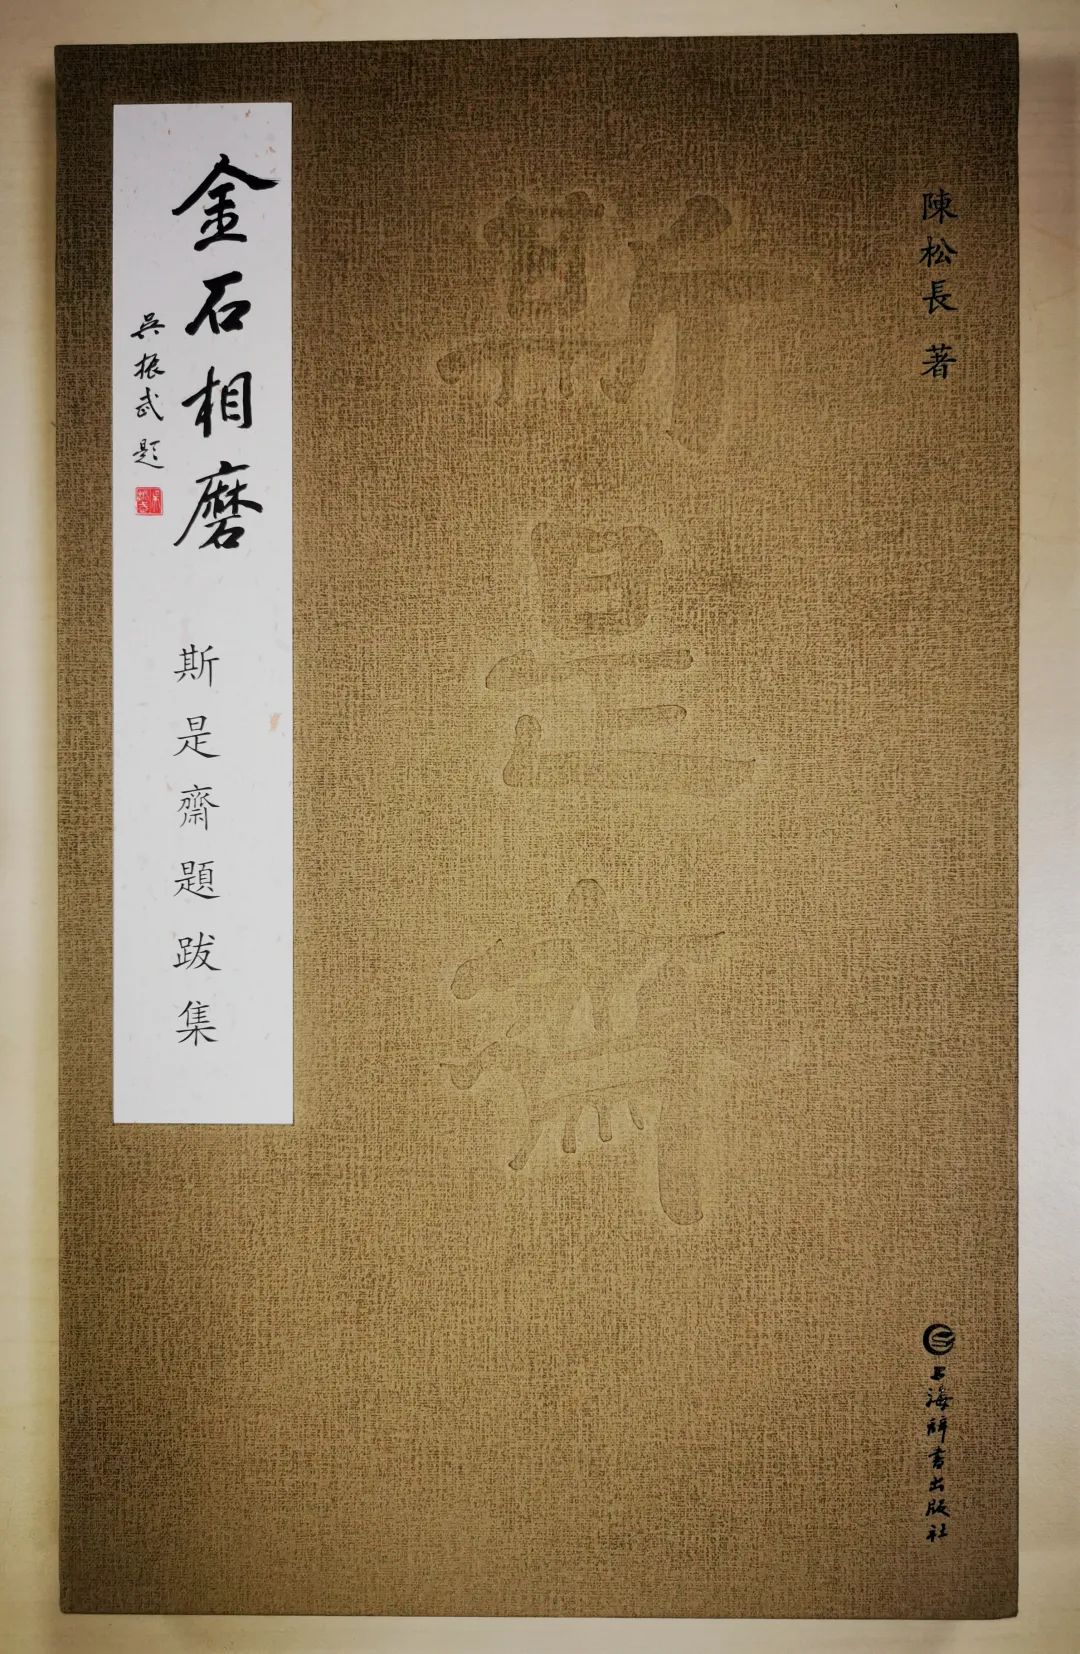 陳松長 著
斯是齋
金石相磨
吳振武題
斯是齋題跋集
上海辭書出版社